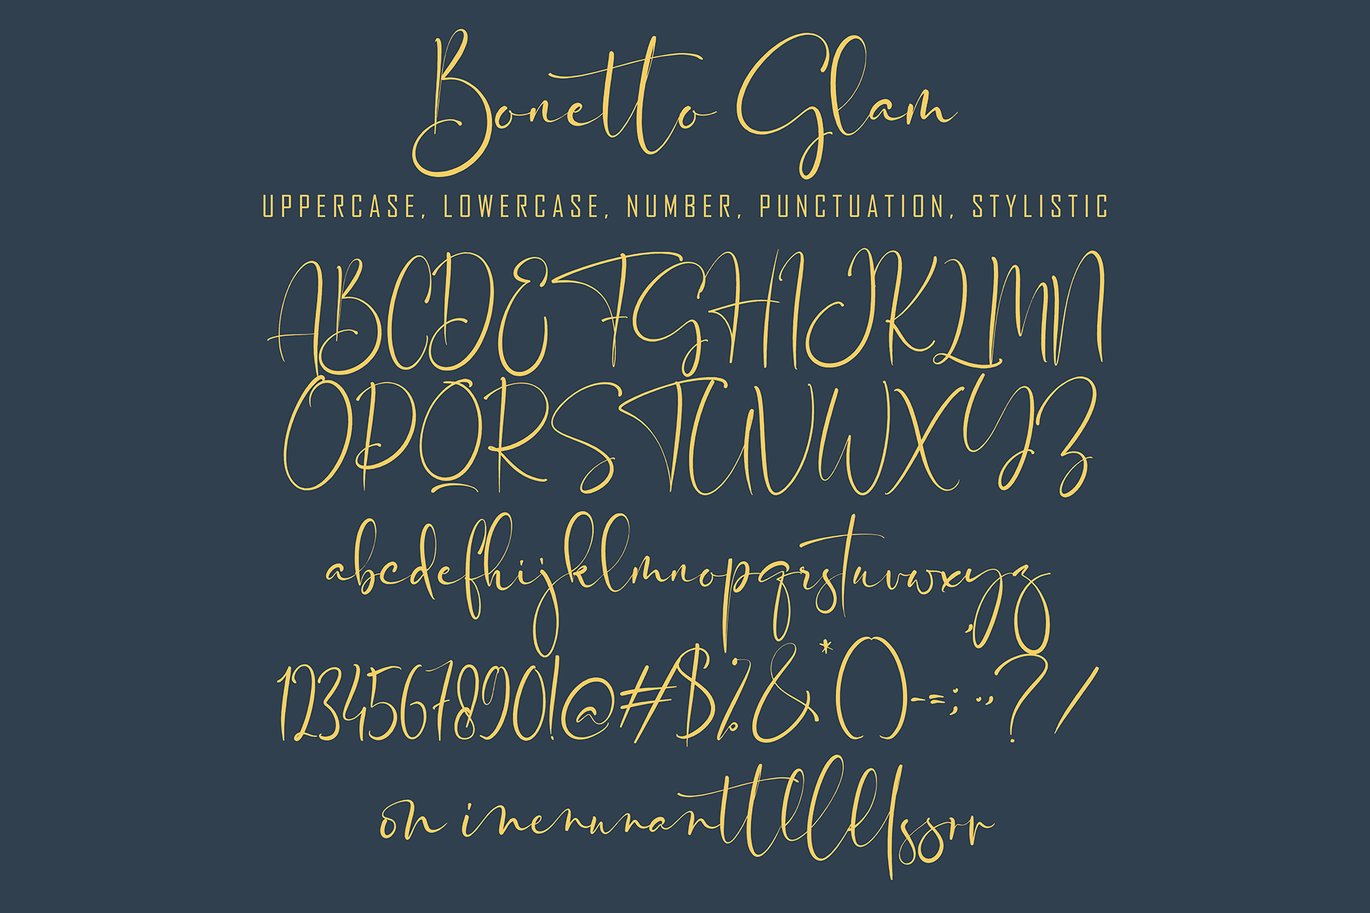 Bonetto Glam
UPPERCASE, LOWERCASE, NUMBER, PUNCTUATION, STYLISTIC
ABCDEFGHIJKLMN
OPQRSTUVWXYZ
abcdefhijklmnopqrstuvwxyz
1234567890!@#$%&*()-=;:,?/